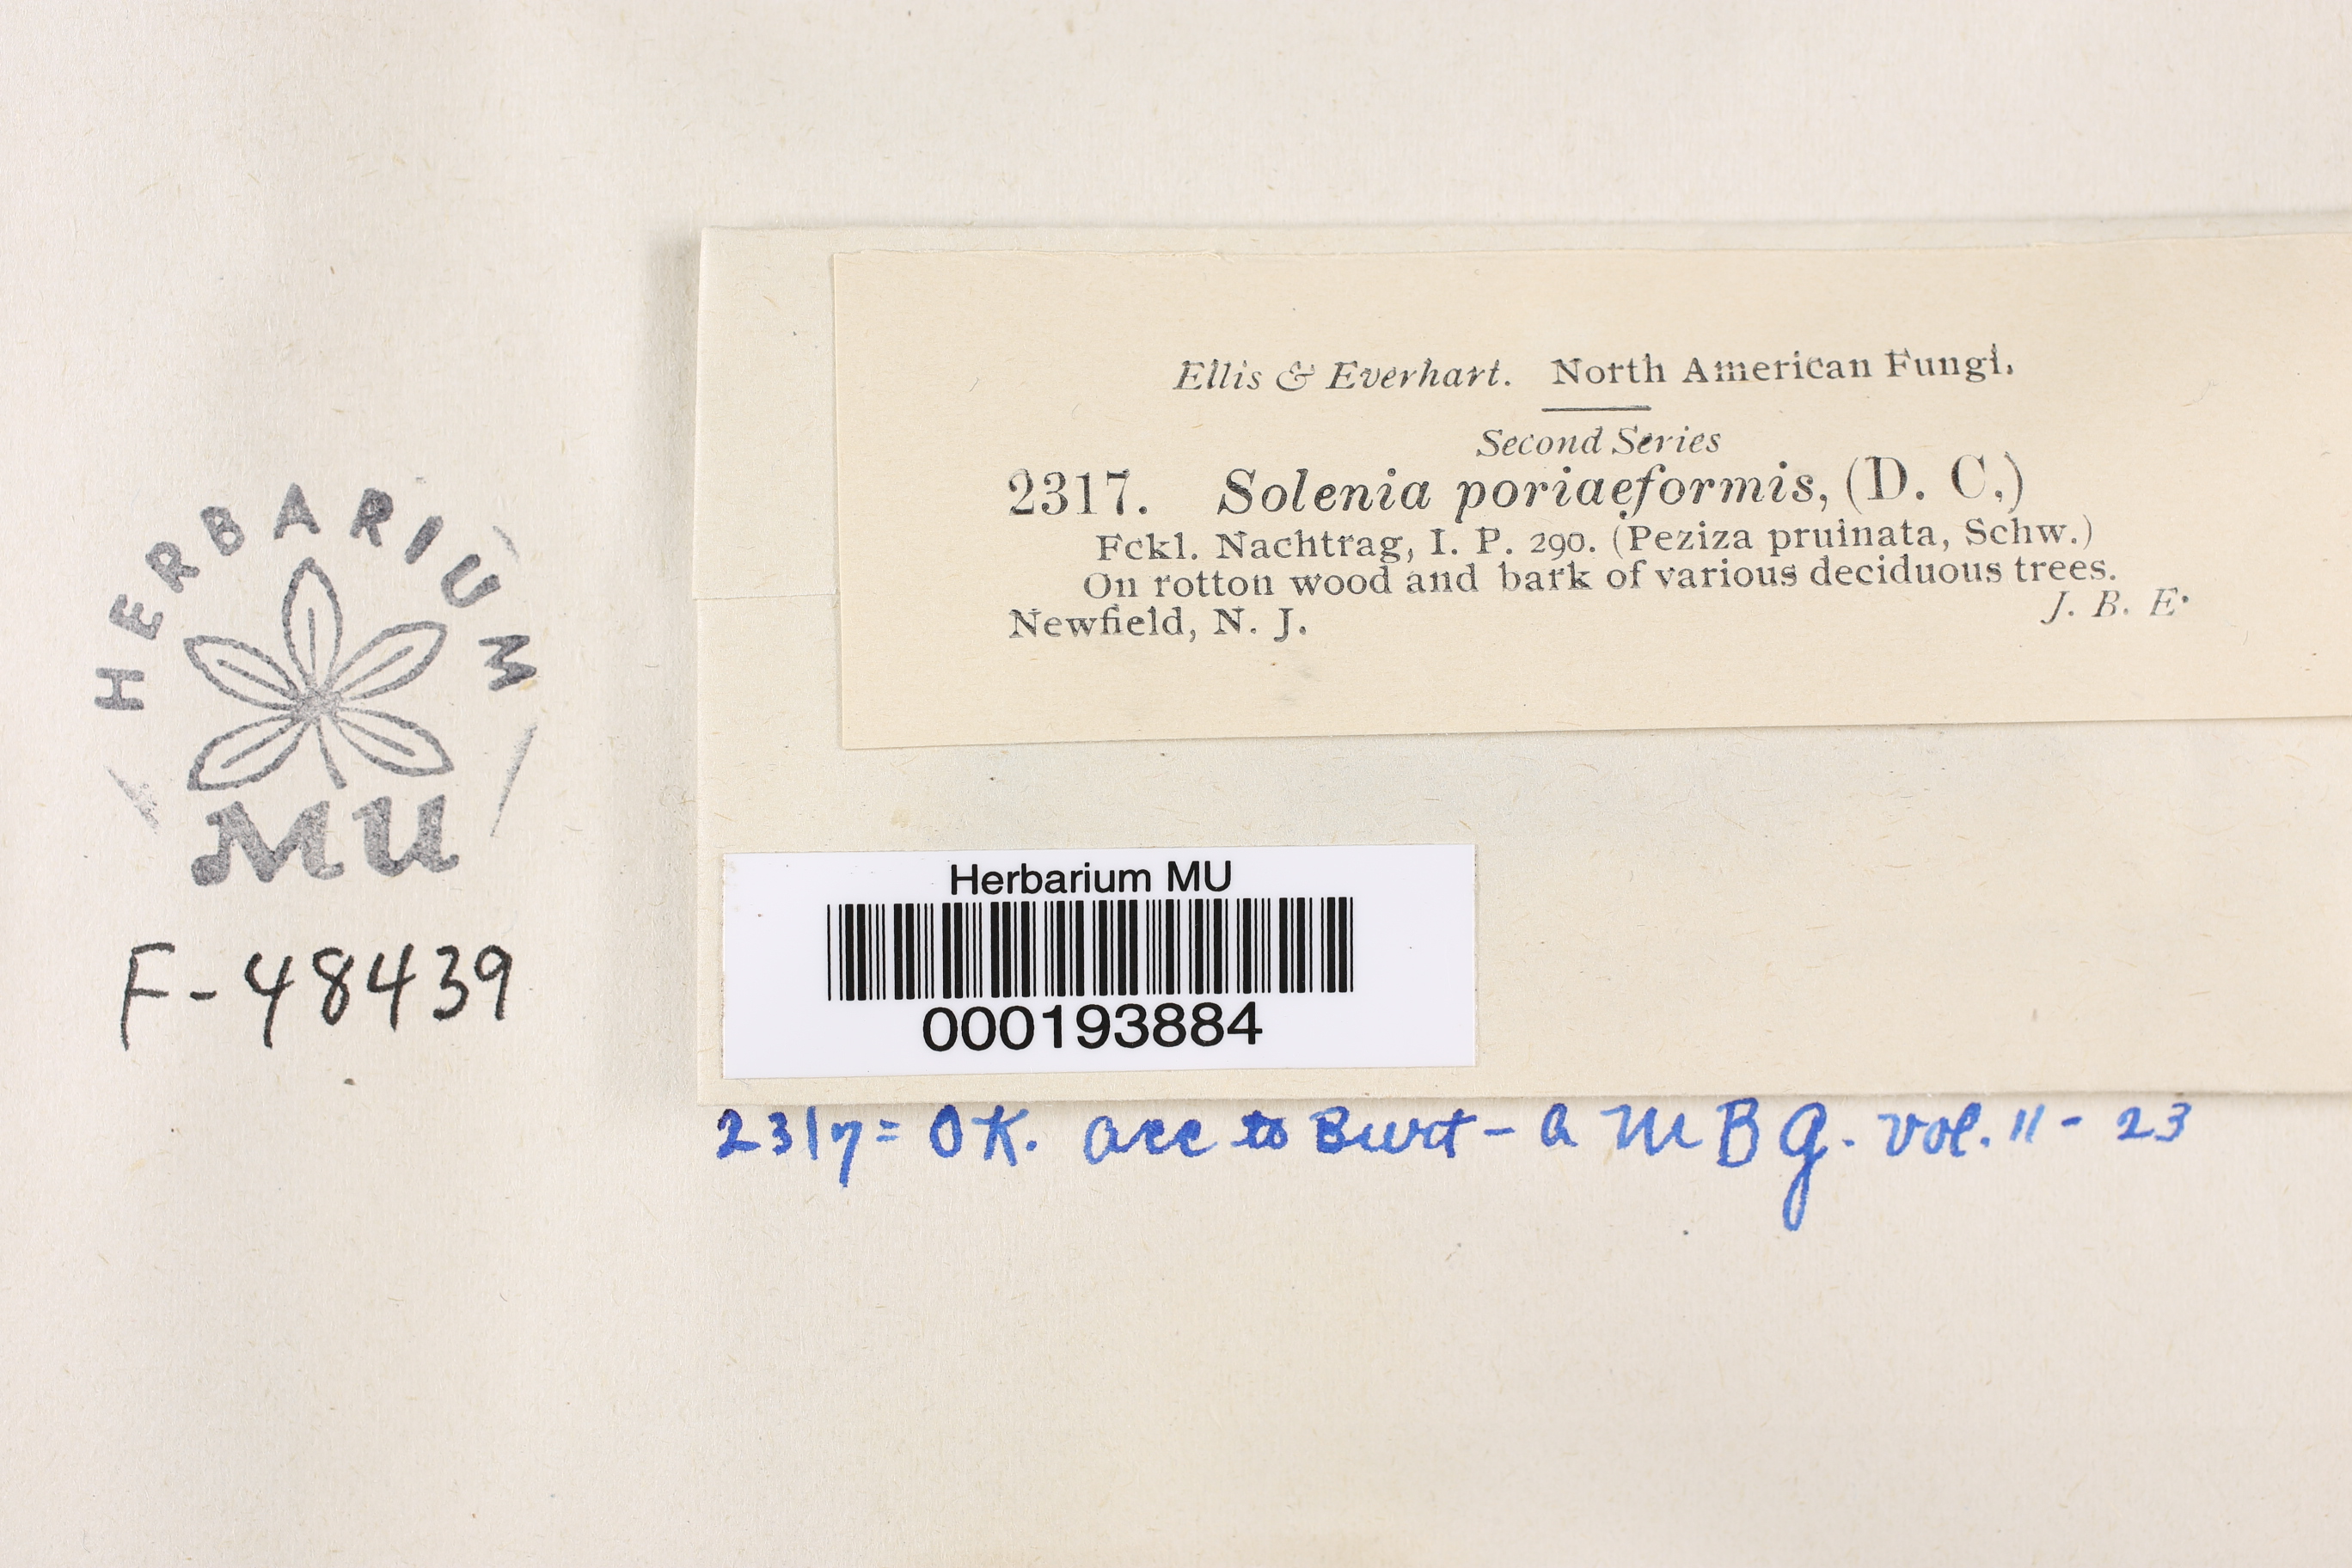 Ellis & Everhart. North American Fungi.
Second Series
2317. Solenia poriaeformis, (D. C.)
Fckl. Nachtrag, I. P. 290. (Peziza pruinata, Schw.)
On rotton wood and bark of various deciduous trees.
Newfield, N. J.
J. B. E.
HERBARIUM
MU
F-48439
Herbarium MU
000193884
2317 = OK. acc to Burt - A M B G. vol. 11 - 23